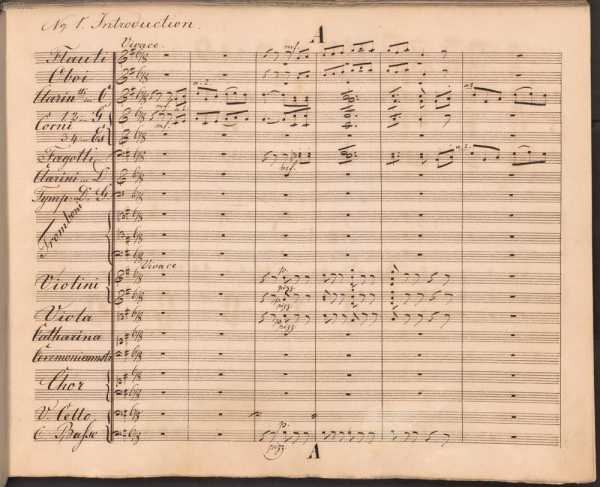 No 1. Introduction.
A
Vivace.
Flauti
Oboi
Clarin
1 2 G
Corni
3 4 Es
Fagotti
Clarini
Tymp. D. G.
Tromboni
Vivace
Violini
Viola
Catharina
Chor
V. Cello
C. Basso
mf
pizz
p.
A